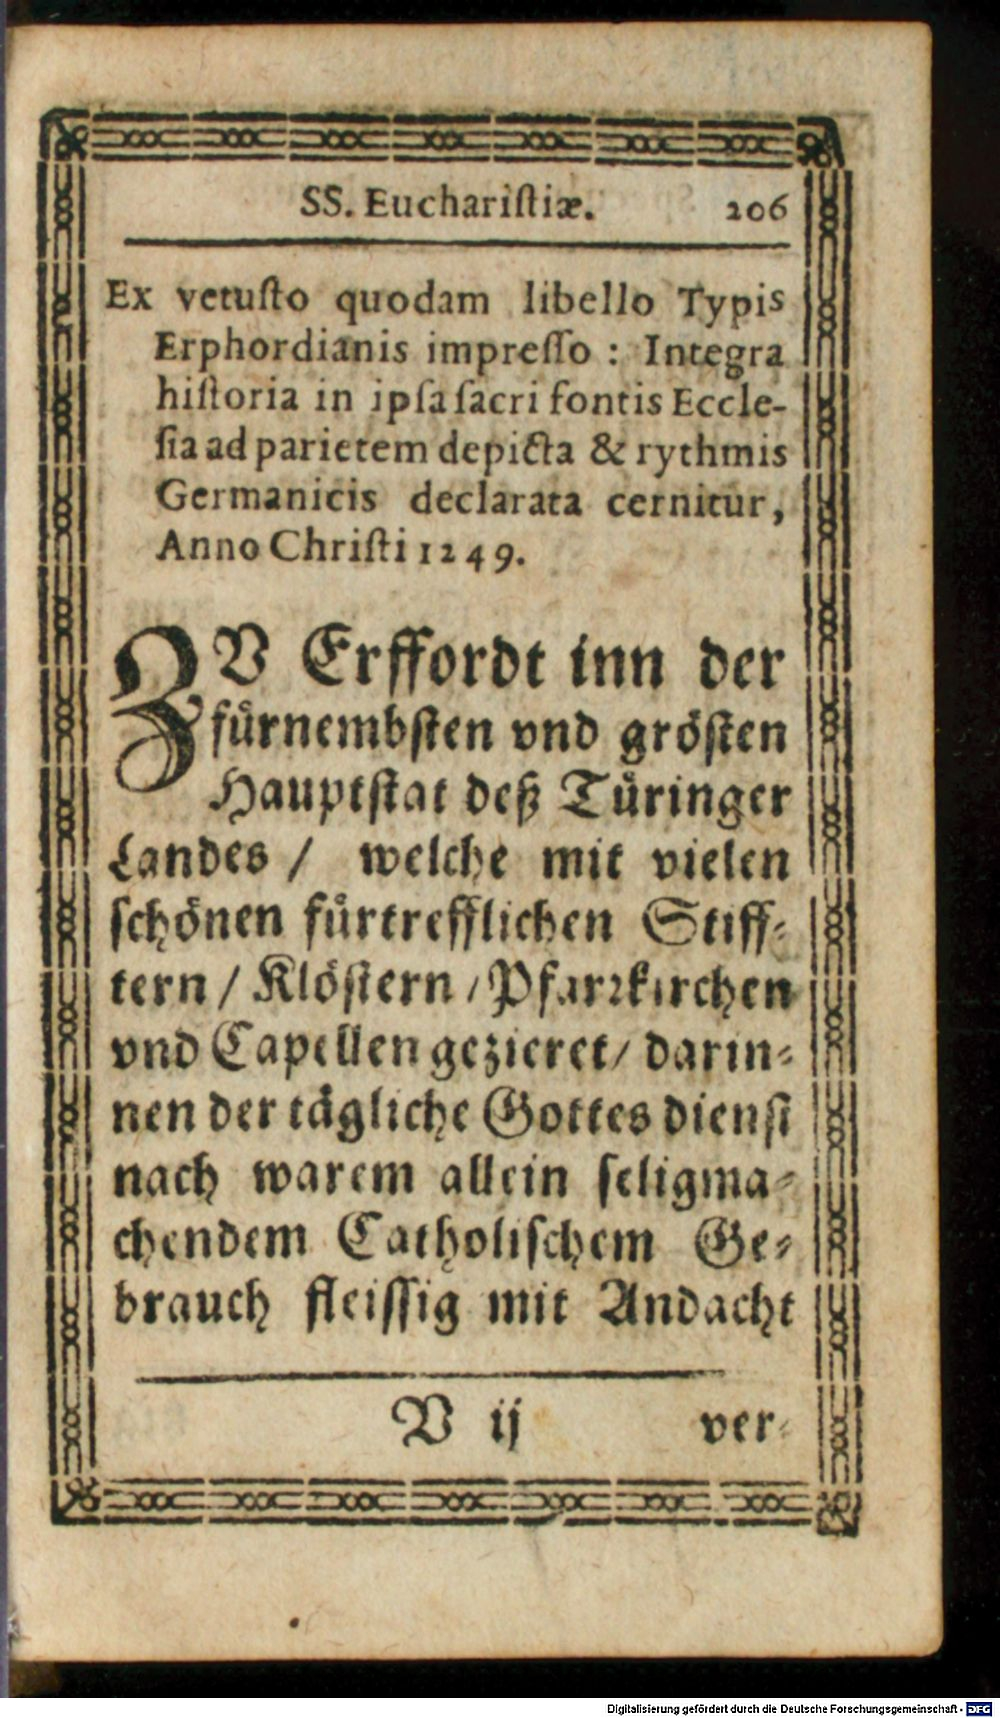 SS. Euchariſtiæ. 206
Ex vetuſto quodam libello Typis
Erphordianis impreſſo : Integra
hiſtoria in ipſa ſacri fontis Eccle-
ſia ad parietem depicta & rythmis
Germanicis declarata cernitur,
Anno Chriſti 1249.
ZV Erffordt inn der
fürnembſten vnd gröſten
Hauptſtat deß Türinger
Landes / welche mit vielen
ſchönen fürtrefflichen Stiff-
tern / Klöſtern / Pfarꝛkirchen
vnd Capellen gezieret / darin-
nen der tägliche Gottes dienſt
nach warem allein ſeligma-
chendem Catholiſchem Ge-
brauch fleiſſig mit Andacht
V ij ver-
Digitalisierung gefördert durch die Deutsche Forschungsgemeinschaft - DFG